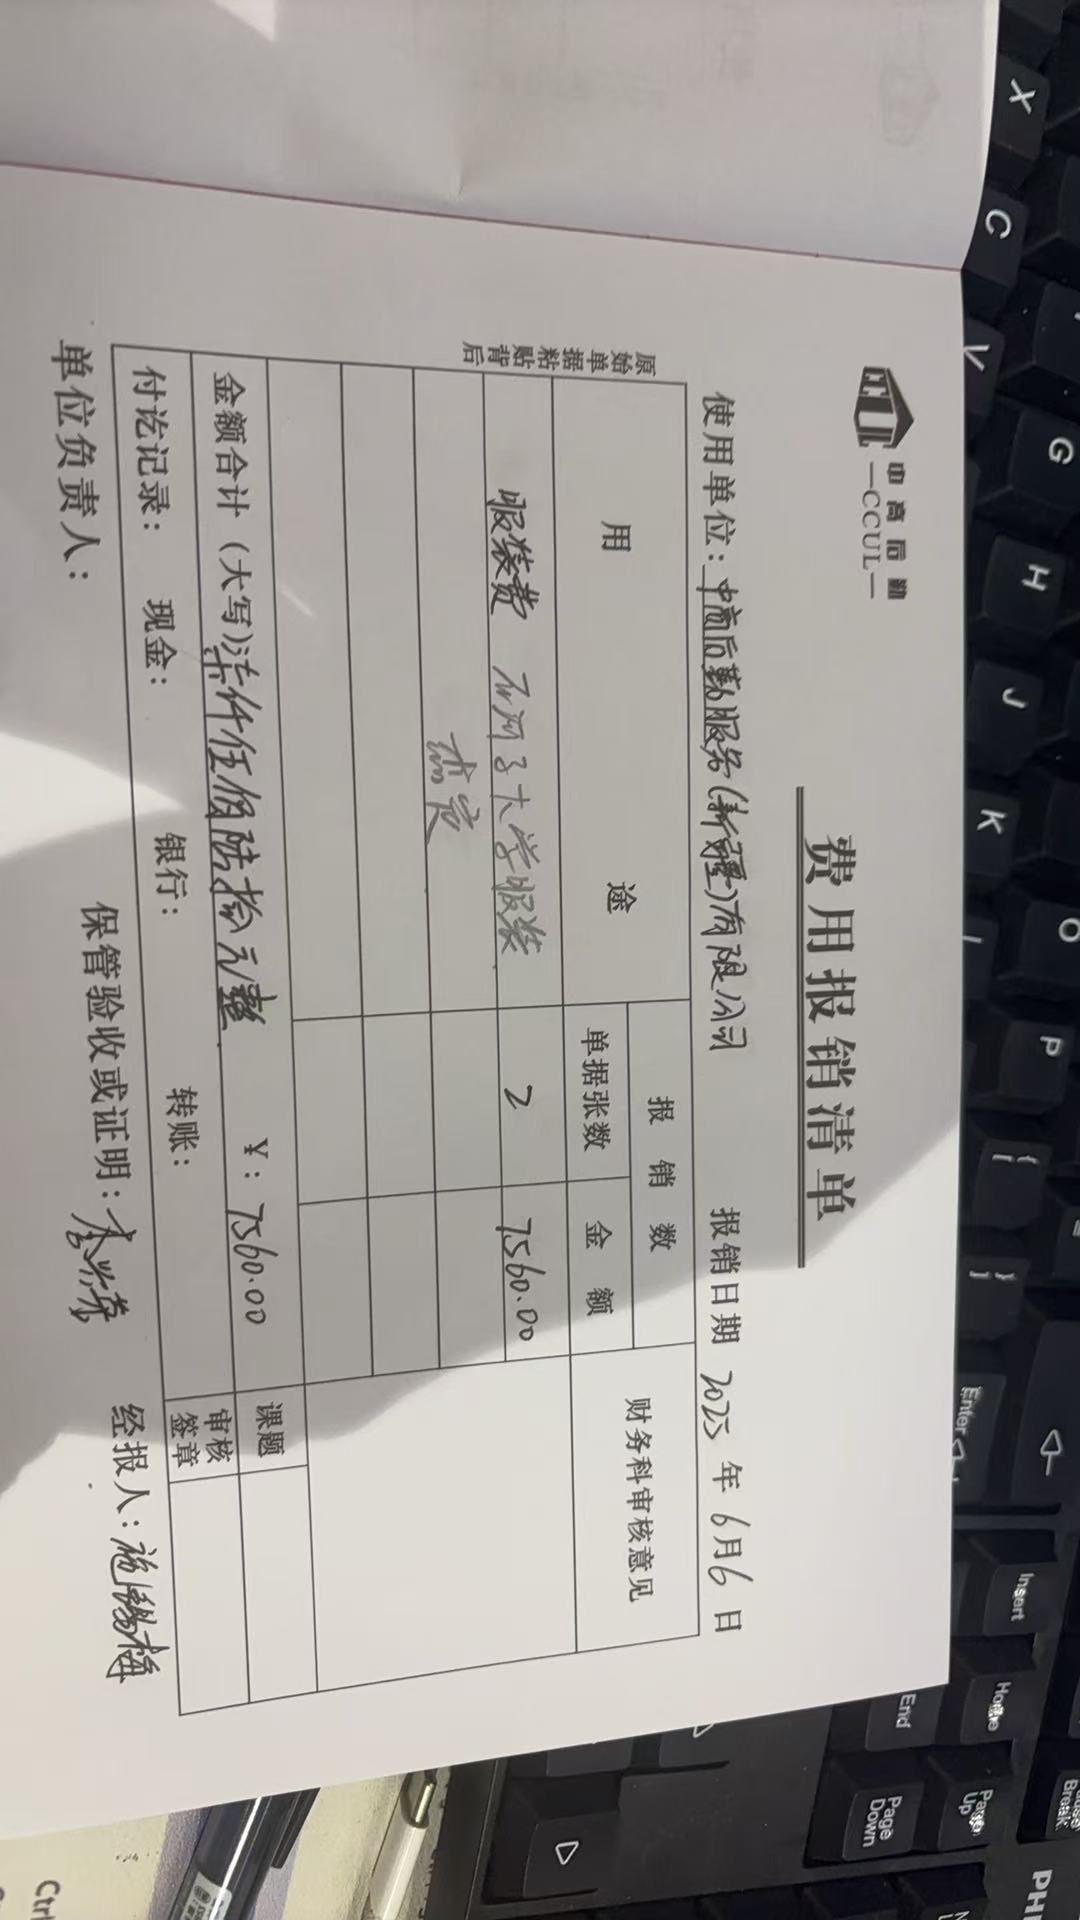 中高后勤
—CCUL—
费用报销清单
使用单位：中高后勤服务(新疆)有限公司 报销日期 2025 年 6 月 6 日
原始单据粘贴背后
用 途
报 销 数
财务科审核意见
单据张数
金 额
服装费 石河子大学服装
2
7560.00
金额合计（大写）柒仟伍佰陆拾元整 ¥：7560.00
课题
付讫记录： 现金： 银行： 转账：
审核签章
单位负责人： 保管验收或证明： 经报人：
X
C
V
G
H
J
K
L
O
P
{
[
}
]
Enter
Insert
Home
Page Up
End
Page Down
Break
PHI
Ctrl